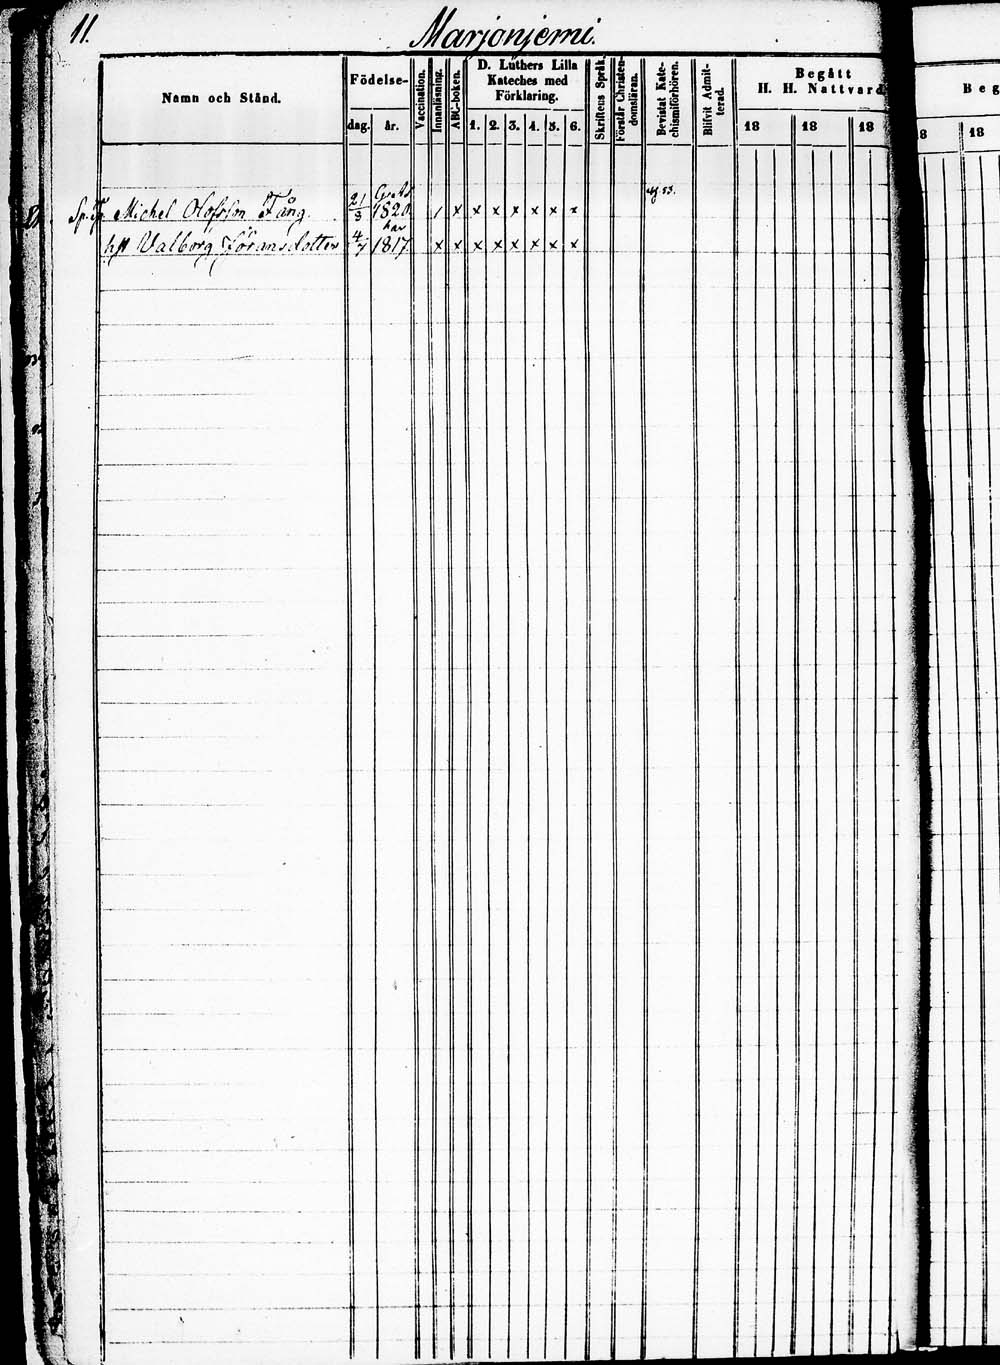 11. Marjonjemi.
Namn och Stånd. Födelse- dag. år. Vaccination. Innanläsning. ABC-boken. D. Luthers Lilla Kateches med Förklaring. 1. 2. 3. 4. 5. 6. Skriftens Språk. Förstår Christendomsläran. Bevistat Katechismiförhören. Blifvit Admitterad. Begått H. H. Nattvard 18 18 18
Beg
8 18
53.
Michel Olofsson Tång. 21/3 1820 x x x x x x x
hst Walborg Göransdotter 4/7 1817. x x x x x x x x